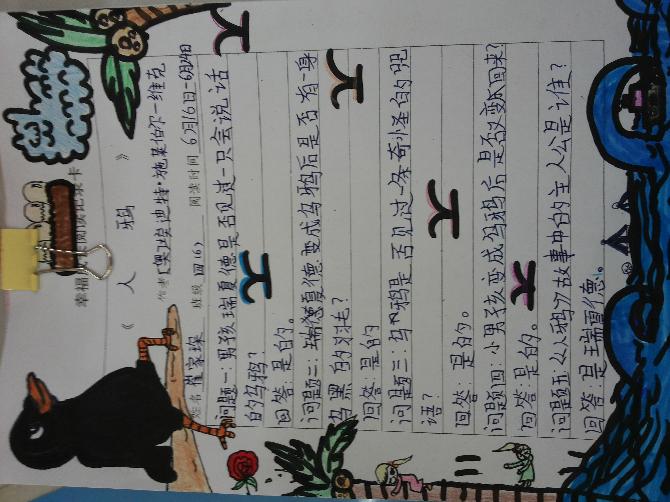 幸福
读记录卡
《 人 鸦 》
作者[奥]埃迪特·施莱伯尔-维克
姓名 崔家 班级 四(6) 阅读时间 6月16日-6月24日
问题一:男孩瑞夏德是否见过一只会说话
的乌鸦?
回答:是的。
问题二:瑞夏德变成乌鸦后是否有一身
乌黑的羽毛?
回答:是的
问题三:乌鸦是否见过一条奇怪的咒
语?
回答:是的。
问题四:小男孩变成乌鸦后是否又变不回来?
回答:是的。
问题五:《人鸦》故事中的主人公是谁?
回答:是瑞夏德。